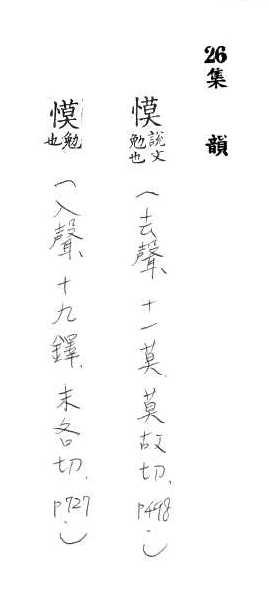 26集韻
慔說文勉也（去聲、十一莫、莫故切、p498。）
慔勉也（入聲、十九鐸、末各切、p727。）